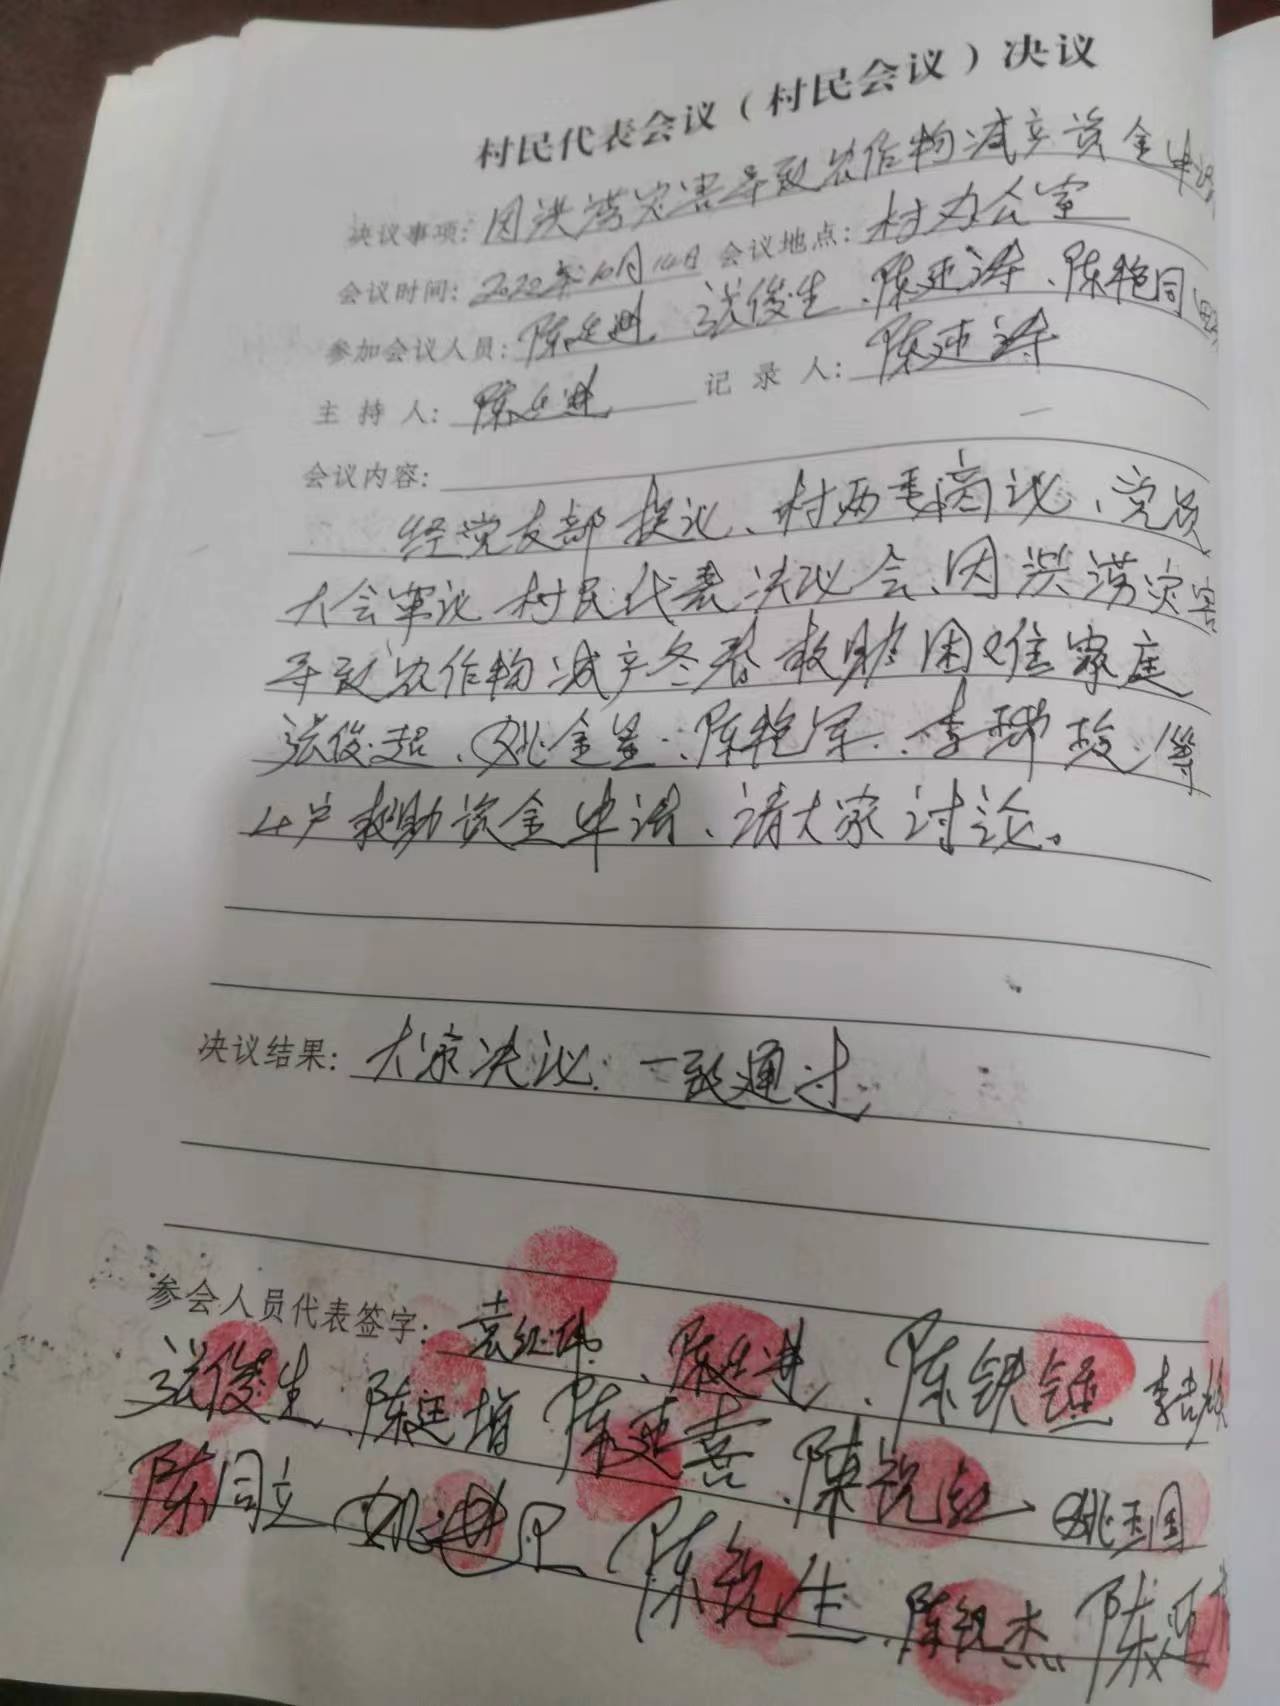 村民代表会议（村民会议）决议
决议事项：因洪涝灾害导致农作物减产资金申请
会议时间：2022年10月14日 会议地点：村办公室
参加会议人员：陈廷进、张俊生、陈延涛、陈艳同
主持人：陈廷进 记录人：陈延涛
会议内容：
经党支部提议、村两委商议、党员
大会审议 村民代表决议会、因洪涝灾害
导致农作物减产冬春救助困难家庭
张俊超、姚金星、陈艳军、李瑞梅、等
4户救助资金申请、请大家讨论。
决议结果：大家决议、一致通过
参会人员代表签字：袁红伟、陈廷进、陈铁锤 李
张俊生、陈廷增 陈延喜、陈锐红、姚玉国
陈同立 姚进 陈锐生、陈锐杰 陈